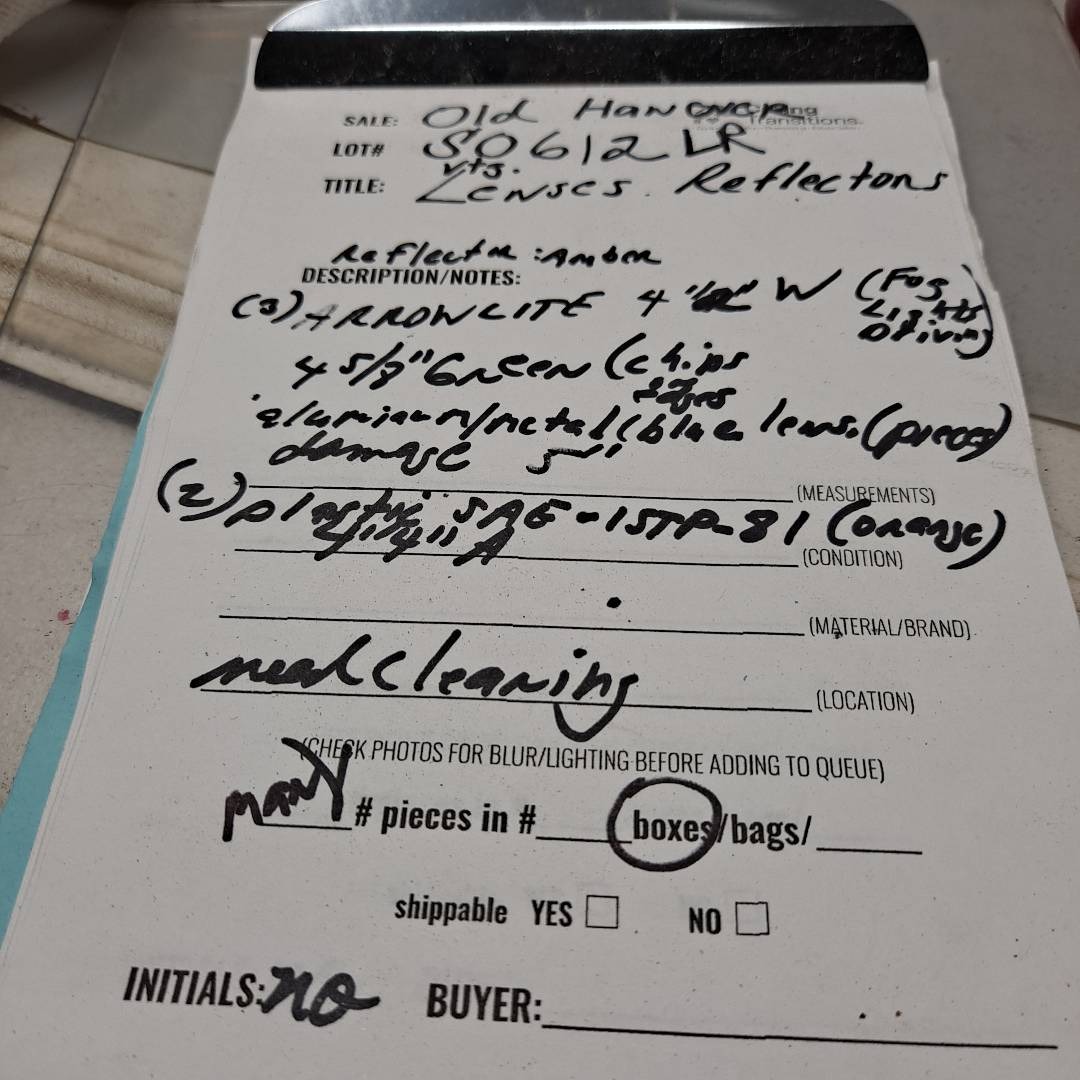 SALE: Old Hanover
Transitions.
LOT# SO612LR
vts.
TITLE: Lenses. Reflectors
Reflector: Amber
DESCRIPTION/NOTES:
(3) ARROWLITE 4 W (Fog
Lights
Driving)
4 5/8" Green (chips
edges
aluminum/metal (blue lens. (pieces)
damage 5"
(MEASUREMENTS)
(2) plastic SAE-ISTP-81 (orange)
4" 4" A
(CONDITION)
(MATERIAL/BRAND)
need cleaning
(LOCATION)
(CHECK PHOTOS FOR BLUR/LIGHTING BEFORE ADDING TO QUEUE)
many # pieces in # boxes/bags/
shippable YES NO
INITIALS: no BUYER: